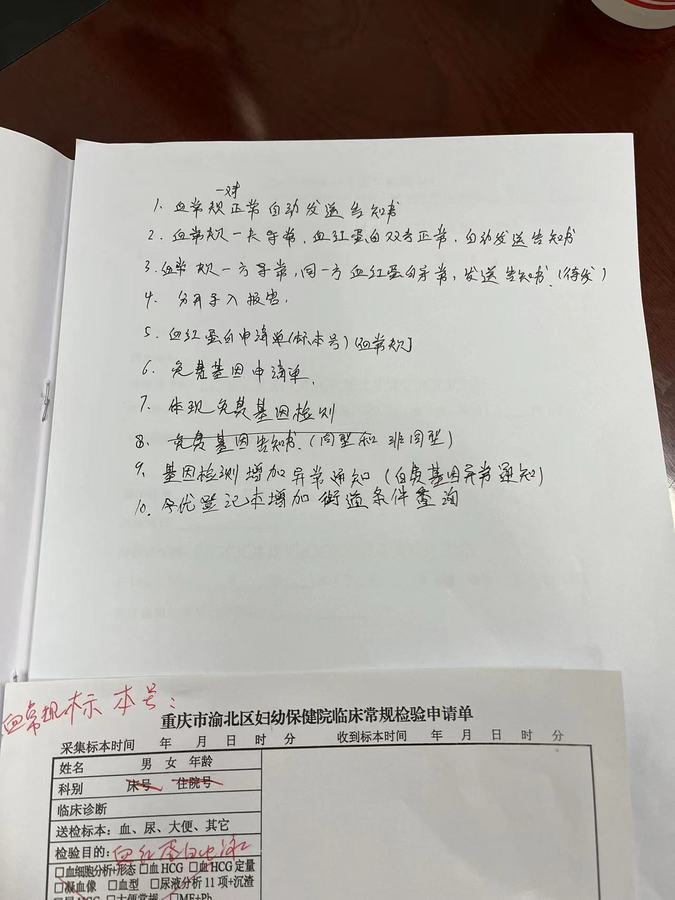 一对
1. 血常规正常自动发送告知书
2. 血常规一方异常,血红蛋白双方正常,自动发送告知书
3. 血常规一方异常,同一方血红蛋白异常,发送告知书.(待发)
4. 分开导入报告.
5. 血红蛋白申请单(标本号)(血常规]
6. 免费基因申请单.
7. 体现免费基因检测
8. 免费基因告知书.(同型和非同型)
9. 基因检测增加异常通知(自费基因异常通知)
10. 优登记本增加街道条件查询
血常规标本号:
重庆市渝北区妇幼保健院临床常规检验申请单
采集标本时间 年 月 日 时 分 收到标本时间 年 月 日 时 分
姓名 男 女 年龄
科别 床号 住院号
临床诊断
送检标本:血、尿、大便、其它
检验目的:血红蛋白电泳
□血细胞分析+形态 □血HCG □血HCG定量
□凝血像 □血型 □尿液分析11项+沉渣
□尿HCG □大便常规 □MF+Ph